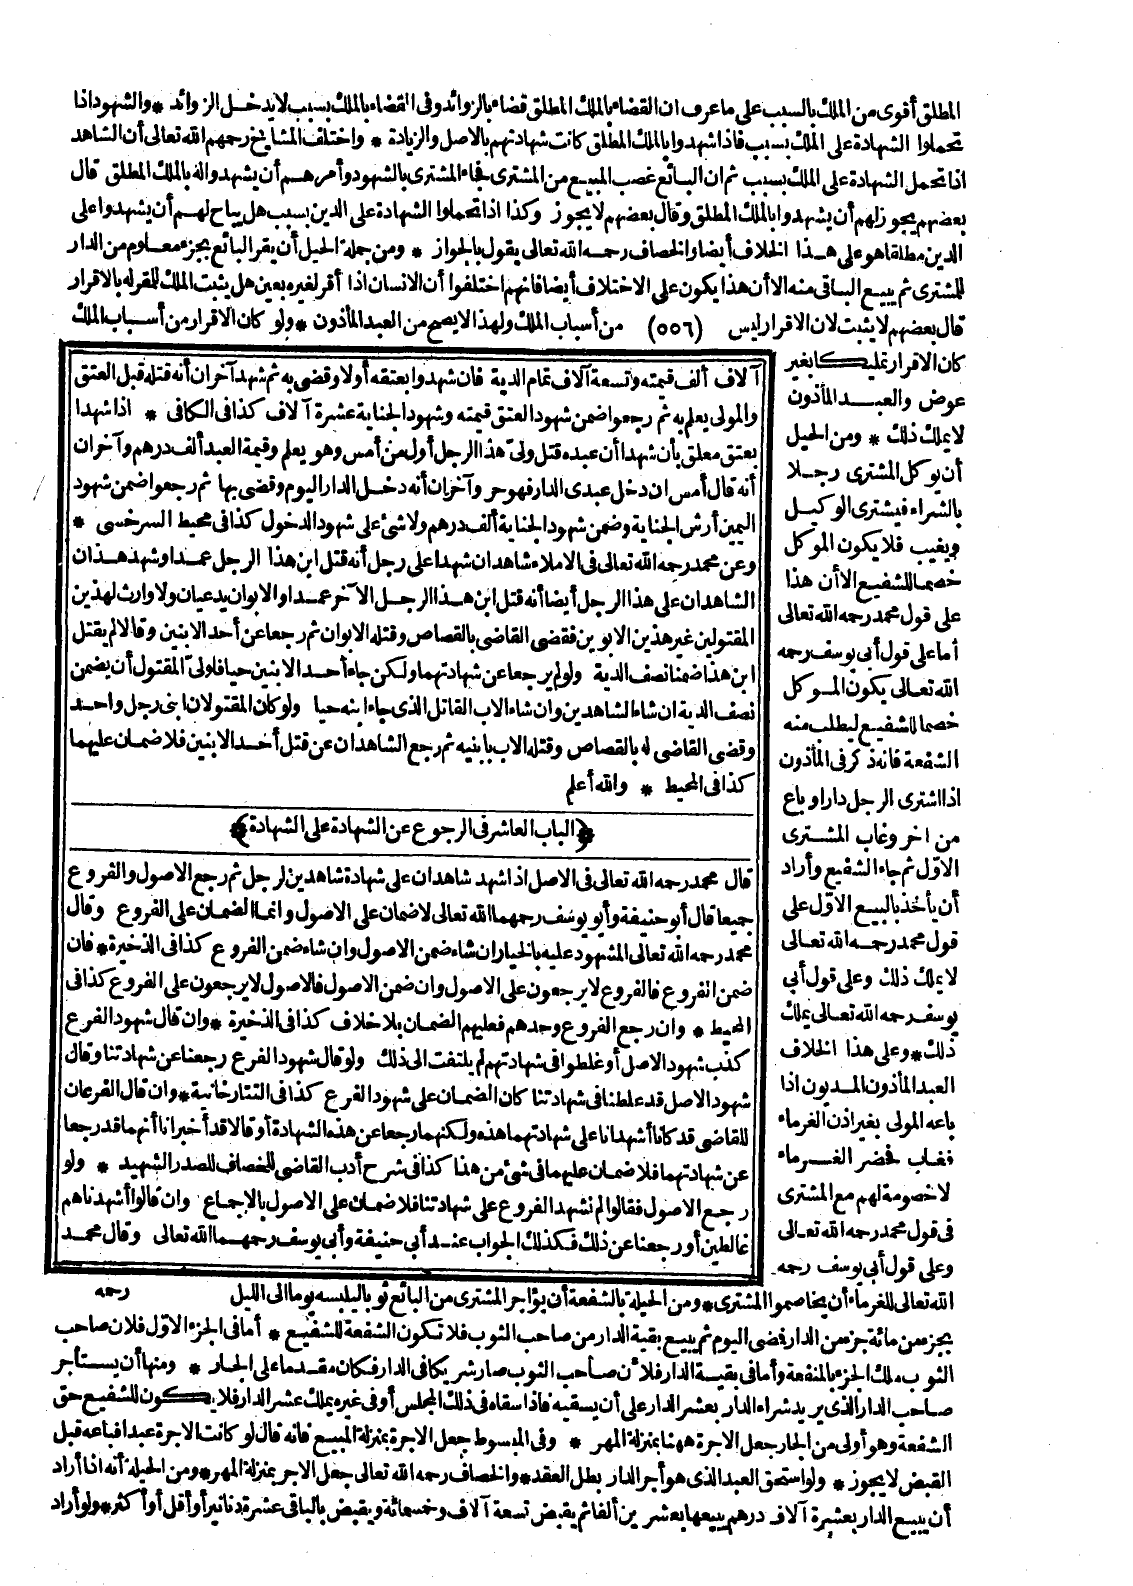 المطلق أقوى من الملك بالسبب على ما عرف ان القضاء بالملك المطلق قضاء بالزوائد وفى القضاء بالملك بسبب لا يدخل الزوائد * والشهود اذا
تحملوا الشهادة على الملك بسبب فاذا شهدوا بالملك المطلق كانت شهادتهم بالاصل والزيادة * واختلف المشايخ رحمهم الله تعالى أن الشاهد
اذا تحمل الشهادة على الملك بسبب ثم ان البائع غصب المبيع من المشترى فجاء المشترى بالشهود وأمرهم أن يشهدوا له بالملك المطلق قال
بعضهم يجوز لهم أن يشهدوا بالملك المطلق وقال بعضهم لا يجوز وكذا اذا تحملوا الشهادة على الدين بسبب هل يباح لهم أن يشهدوا على
الدين مطلقا هو على هذا الخلاف أيضا والخصاف رحمه الله تعالى يقول بالجواز * ومن جملة الحيل أن يقر البائع بجزء معلوم من الدار
للمشترى ثم يبيع الباقى منه الا أن هذا يكون على الاختلاف أيضا فانهم اختلفوا أن الانسان اذا أقر لغيره بعين هل يثبت الملك للمقر له بالاقرار
قال بعضهم لا يثبت لان الاقرار ليس (٥٥٦) من أسباب الملك ولهذا لا يصح من العبد المأذون * ولو كان الاقرار من أسباب الملك
كان الاقرار تمليكا بغير
عوض والعبد المأذون
لا يملك ذلك * ومن الحيل
أن يوكل المشترى رجلا
بالشراء فيشترى الوكيل
ويغيب فلا يكون الموكل
خصما للشفيع الا أن هذا
على قول محمد رحمه الله تعالى
أما على قول أبى يوسف رحمه
الله تعالى يكون الموكل
خصما للشفيع ليطلب منه
الشفعة فانه ذكر فى المأذون
اذا اشترى الرجل دارا وباع
من آخر وغاب المشترى
الاوّل ثم جاء الشفيع وأراد
أن يأخذ بالبيع الاوّل على
قول محمد رحمه الله تعالى
لا يملك ذلك وعلى قول أبى
يوسف رحمه الله تعالى يملك
ذلك * وعلى هذا الخلاف
العبد المأذون المديون اذا
باعه المولى بغير اذن الغرماء
فغاب فحضر الغرماء
لا خصومة لهم مع المشترى
فى قول محمد رحمه الله تعالى
وعلى قول أبى يوسف رحمه
آلاف ألف قيمته وتسعة آلاف تمام الدية فان شهدوا بعتقه أولا وقضى به ثم شهد آخران أنه قتله قبل العتق
والمولى يعلم به ثم رجعوا ضمن شهود العتق قيمته وشهود الجناية عشرة آلاف كذا فى الكافى * اذا شهدا
بعتق معلق بأن شهدا أن عبده قتل ولىّ هذا الرجل أول من أمس وهو يعلم وقيمة العبد ألف درهم وآخران
أنه قال أمس ان دخل عبدى الدار فهو حر وآخران أنه دخل الدار اليوم وقضى بها ثم رجعوا ضمن شهود
اليمين أرش الجناية وضمن شهود الجناية ألف درهم ولا شئ على شهود الدخول كذا فى محيط السرخسى *
وعن محمد رحمه الله تعالى فى الاملاء شاهدان شهدا على رجل أنه قتل ابن هذا الرجل عمدا وشهد هذان
الشاهدان على هذا الرجل أيضا أنه قتل ابن هذا الرجل الآخر عمدا والابوان يدعيان ولا وارث لهذين
المقتولين غير هذين الابوين فقضى القاضى بالقصاص وقتله الابوان ثم رجعا عن أحد الابنين وقالا لم يقتل
ابن هذا ضمنا نصف الدية ولو لم يرجعا عن شهادتهما ولكن جاء أحد الابنين حيا فاولىّ المقتول أن يضمن
نصف الدية ان شاء الشاهدين وان شاء الاب القاتل الذى جاء ابنه حيا ولو كان المقتولان ابنى رجل واحد
وقضى القاضى له بالقصاص وقتله الاب بابنيه ثم رجع الشاهدان عن قتل أحد الابنين فلا ضمان عليهما
كذا فى المحيط * والله أعلم
﴿الباب العاشر فى الرجوع عن الشهادة على الشهادة﴾
قال محمد رحمه الله تعالى فى الاصل اذا شهد شاهدان على شهادة شاهدين لرجل ثم رجع الاصول والفروع
جميعا قال أبو حنيفة وأبو يوسف رحمهما الله تعالى لا ضمان على الاصول وانما الضمان على الفروع وقال
محمد رحمه الله تعالى المشهود عليه بالخيار ان شاء ضمن الاصول وان شاء ضمن الفروع كذا فى الذخيرة * فان
ضمن الفروع فالفروع لا يرجعون على الاصول وان ضمن الاصول فالاصول لا يرجعون على الفروع كذا فى
المحيط * وان رجع الفروع وحدهم فعليهم الضمان بلا خلاف كذا فى الذخيرة * وان قال شهود الفرع
كذب شهود الاصل أو غلطوا فى شهادتهم لم يلتفت الى ذلك ولو قال شهود الفرع رجعنا عن شهادتنا وقال
شهود الاصل قد غلطنا فى شهادتنا كان الضمان على شهود الفرع كذا فى التتارخانية * وان قال الفرعان
للقاضى قد كانا أشهدانا على شهادتهما هذه ولكنهما رجعا عن هذه الشهادة أو قالا قد أخبرانا أنهما قد رجعا
عن شهادتهما فلا ضمان عليهما فى شئ من هذا كذا فى شرح أدب القاضى للخصاف للصدر الشهيد * ولو
رجع الاصول فقالوا لم نشهد الفروع على شهادتنا فلا ضمان على الاصول بالاجماع وان قالوا أشهدناهم
غالطين أو رجعنا عن ذلك فكذلك الجواب عند أبى حنيفة وأبى يوسف رحمهما الله تعالى وقال محمد
رحمه
الله تعالى للغرماء أن يخاصموا المشترى * ومن الحيلة بالشفعة أن يؤاجر المشترى من البائع ثوبا ليلبسه يوما الى الليل
بجزء من مائة جزء من الدار فمضى اليوم ثم يبيع بقية الدار من صاحب الثوب فلا تكون الشفعة للشفيع * أما فى الجزء الاوّل فلان صاحب
الثوب ملك الجزء بالمنفعة وأما فى بقية الدار فلأن صاحب الثوب صار شريكا فى الدار فكان مقدما على الجار * ومنها أن يستأجر
صاحب الدار الذى يريد شراء الدار بعشر الدار على أن يسقيه فاذا سقاه فى ذلك المجلس أو فى غيره يملك عشر الدار فلا يكون للشفيع حق
الشفعة وهو أولى من الجار جعل الاجرة ههنا بمنزلة المهر * وفى المبسوط جعل الاجرة بمنزلة المبيع فانه قال لو كانت الاجرة عبدا فباعه قبل
القبض لا يجوز * ولو استحق العبد الذى هو أجر الدار بطل العقد * والخصاف رحمه الله تعالى جعل الاجر بمنزلة المهر * ومن الحيلة أنه اذا أراد
أن يبيع الدار بعشرة آلاف درهم يبيعها بعشرين ألفا ثم يقبض تسعة آلاف وخمسمائة ويقبض بالباقى عشرة دنانير أو أقل أو أكثر * ولو أراد